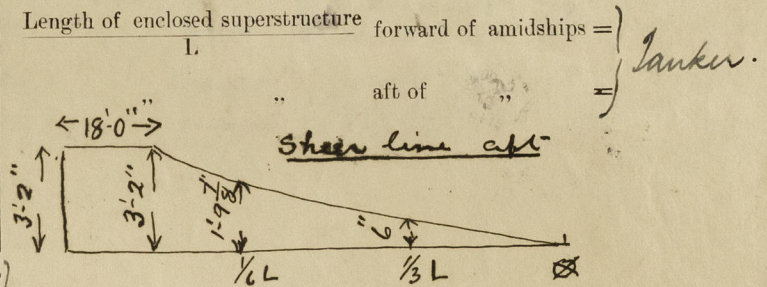 Length of enclosed superstructure
L
forward of amidships =
Tanker.
„ aft of „ =
18'-0"
Sheer line aft
3'-2"
3'-2"
1'-9 7/8"
6"
1/6 L
1/3 L